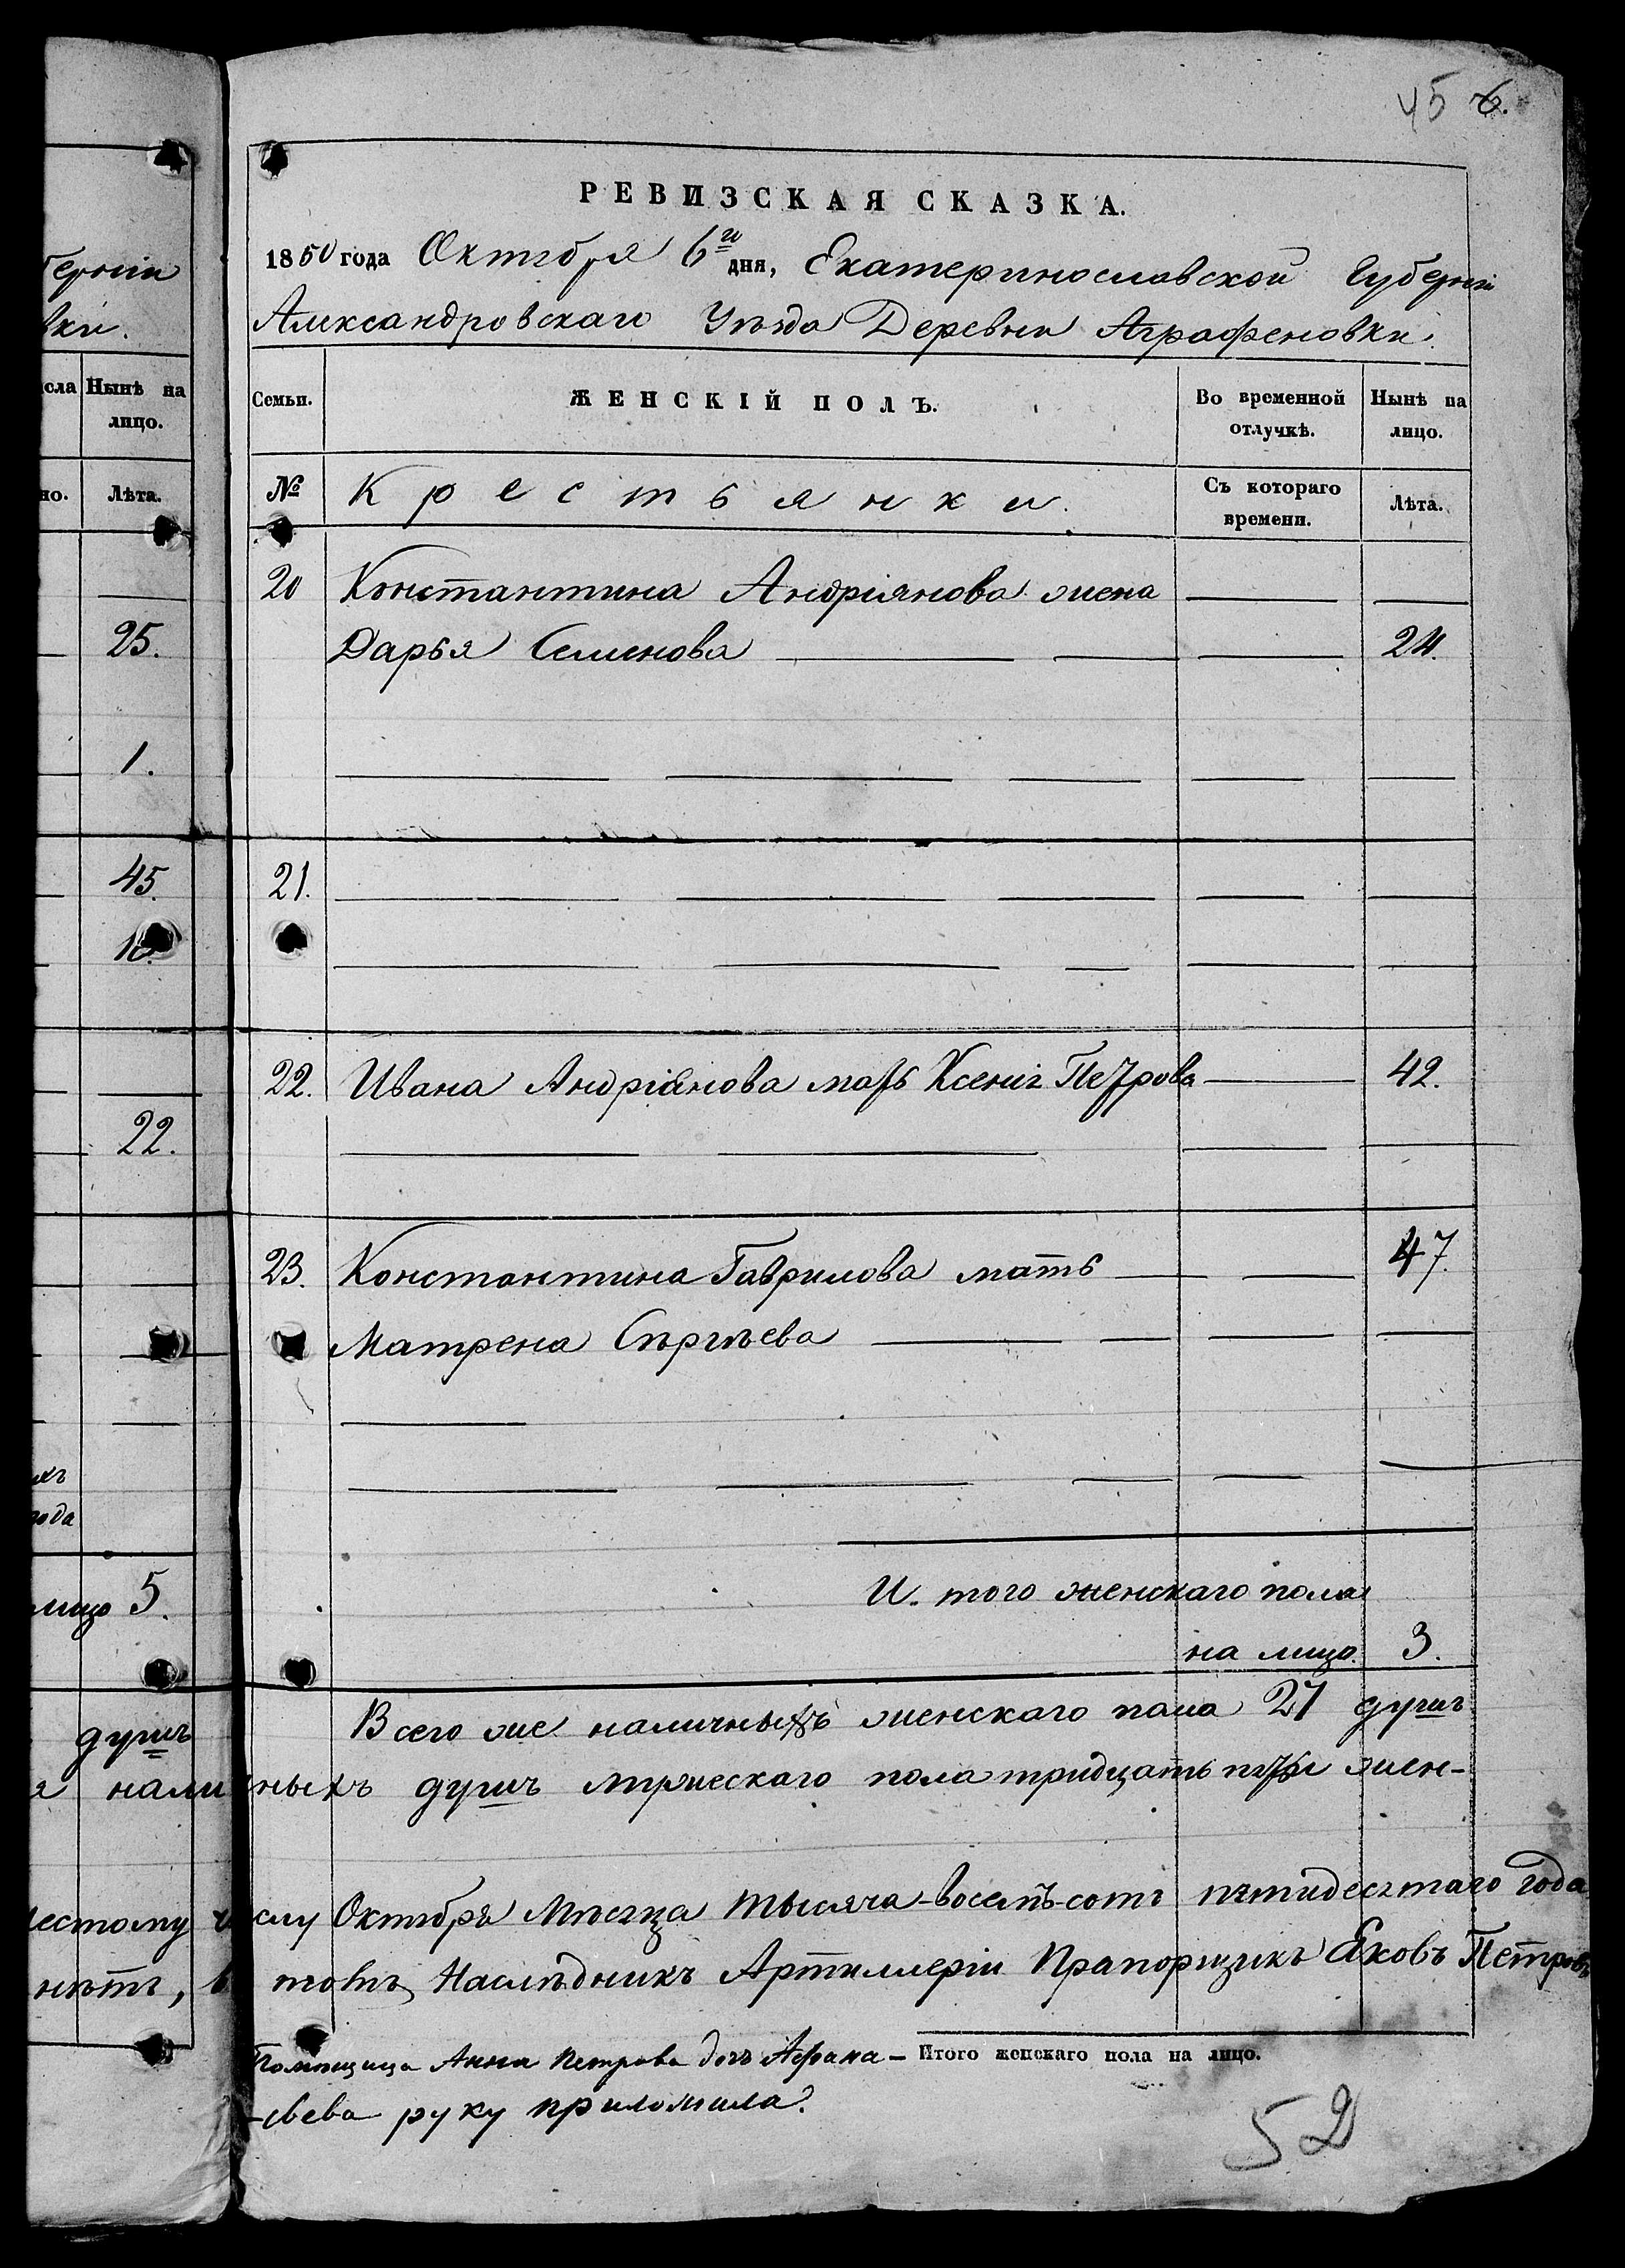 45 6.
РЕВИЗСКАЯ СКАЗКА.
1850 года Октября 6го дня, Екатеринославской Губерніи
Александровскаго Уѣзда Деревни Аграфеновки.
Семьи. ЖЕНСКІЙ ПОЛЪ. Во временной отлучкѣ. Нынѣ на лицо.
№ Крестьянки. Съ котораго времени. Лѣта.
20 Константина Андріянова жена
Дарья Семенова 24.
21.
22. Ивана Андріянова мать Ксенія Петрова 42.
23. Константина Гаврилова мать 47.
Матрена Сергѣева
И того женскаго пола
на лицо 3.
Всего же наличныхъ женскаго пола 27 душъ
ныхъ душъ мужескаго пола тридцать пять и жен-
слу Октября Мѣсяца тысяча-восемъ-сотъ пятидесятаго года
Наслѣдникъ Артиллеріи Прапорщикъ Яковъ Петровъ
Помѣщица Анна Петрова дочь Афана-
сьева руку приложила.
Итого женскаго пола на лицо.
52
герніи
вки.
сла Нынѣ на лицо.
но. Лѣта.
25.
1.
45.
10.
22.
ихъ
года
лицо 5.
душъ
я налич
шестому чи
нѣтъ, в